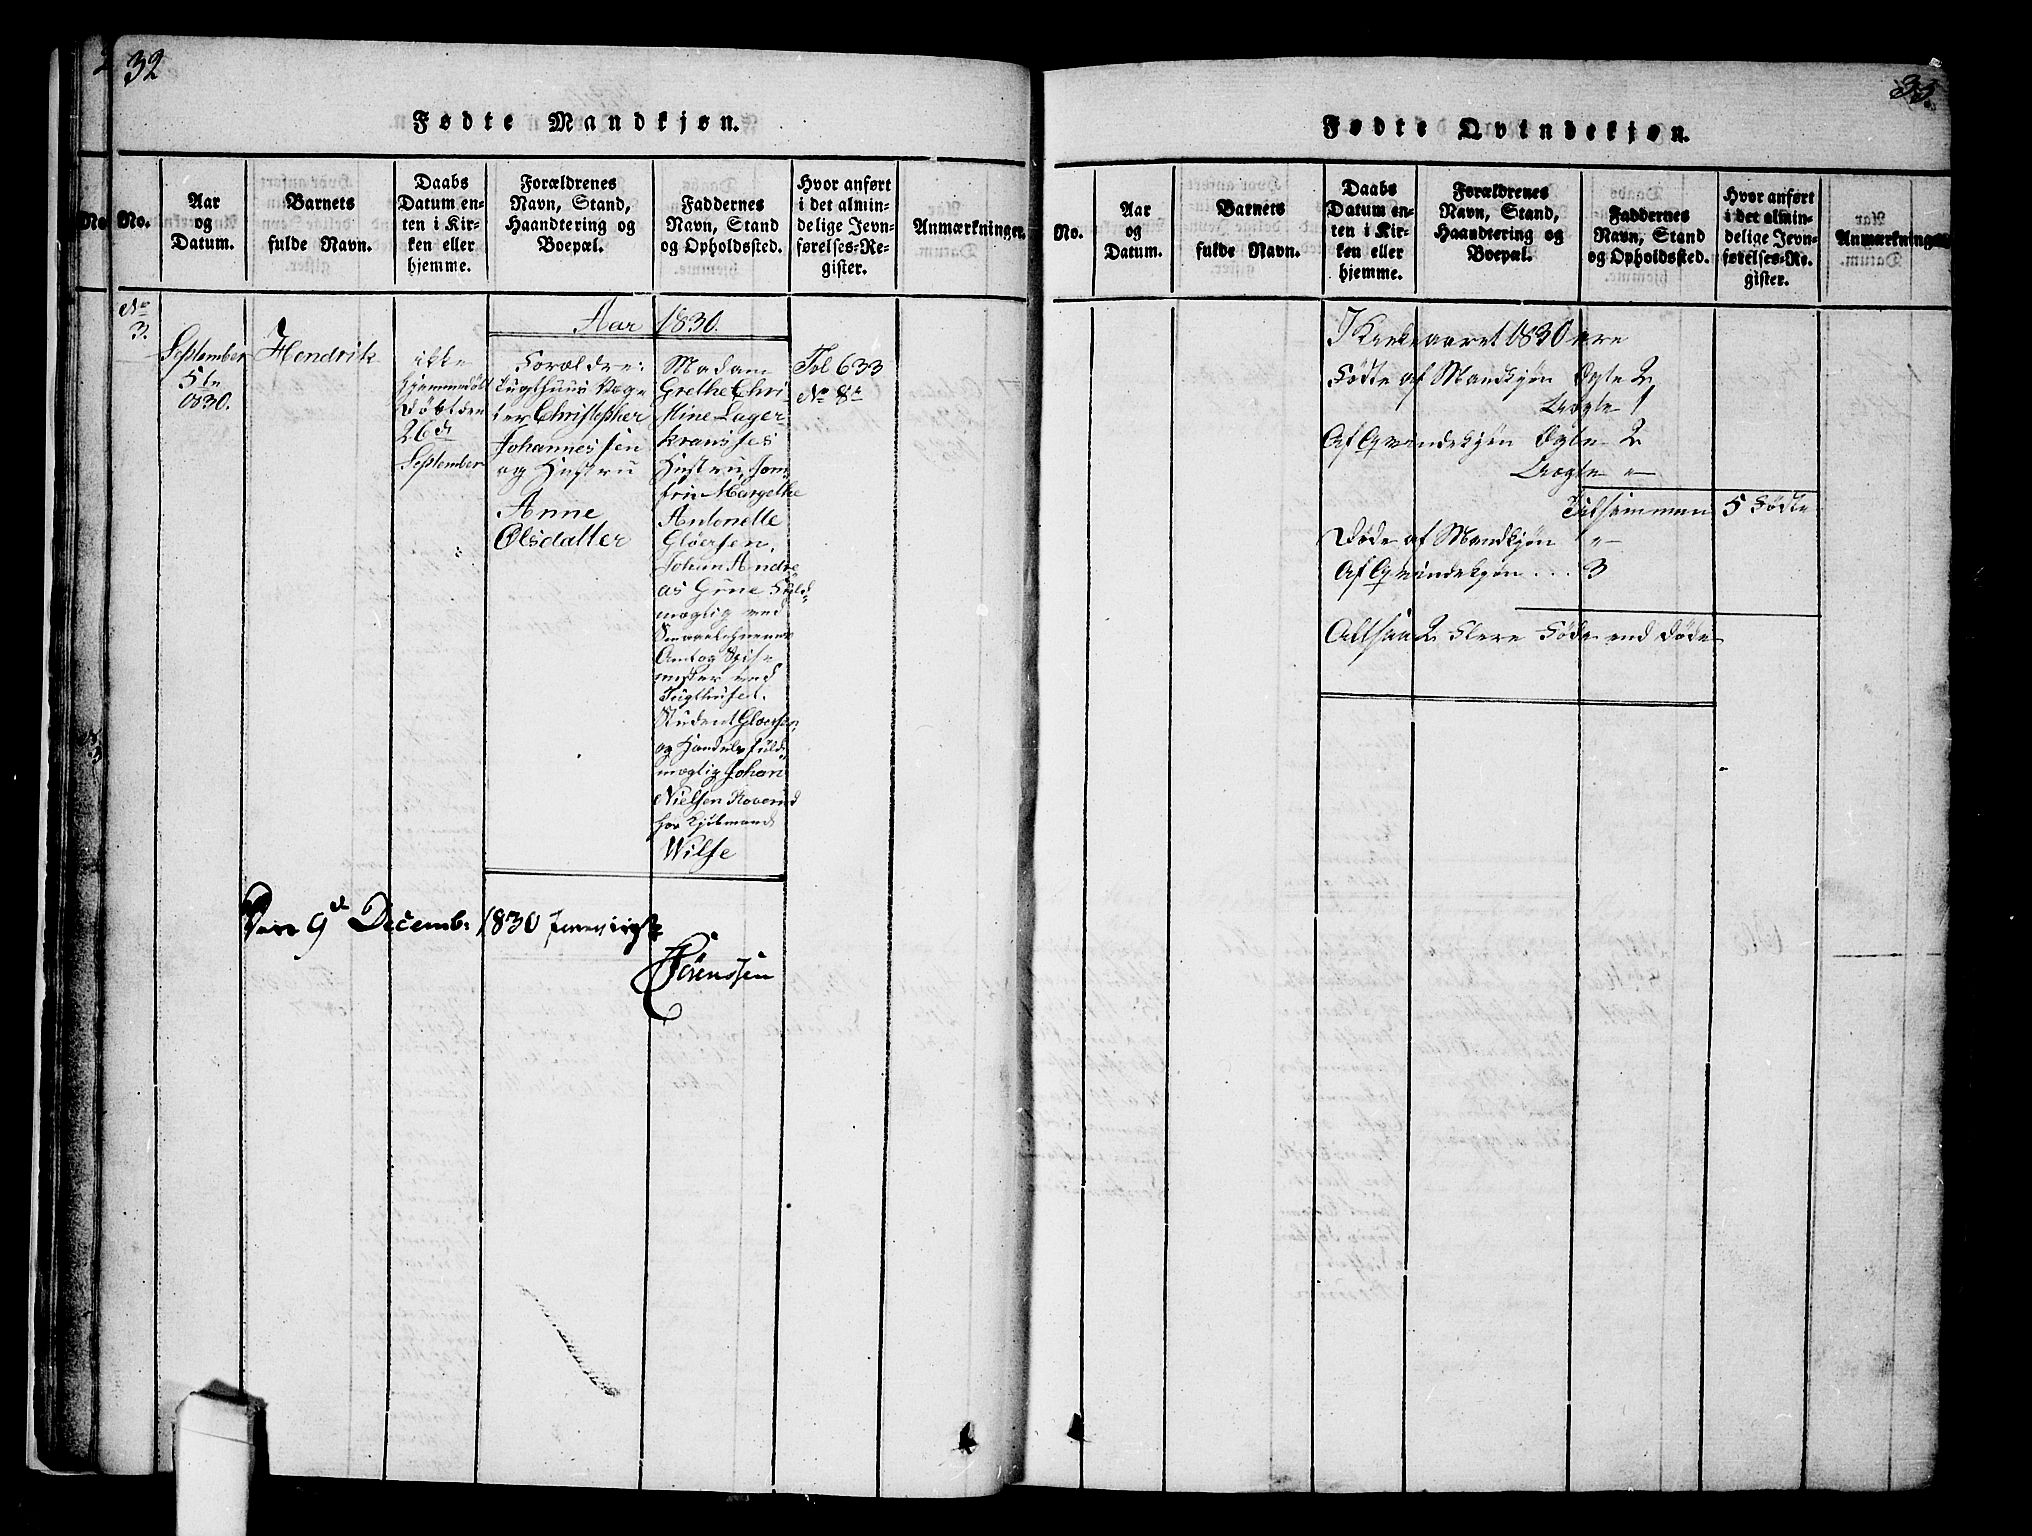 32
Fødte Mandkjøn.
No.
No.
Aar
og
Datum.
Barnets
fulde Navn.
Daabs
Datum en-
ten i Kir-
ken eller
hjemme.
Forældrenes
Navn, Stand,
Haandtering og
Boepæl.
Faddernes
Navn, Stand
og Opholdssted.
Hvor anført
i det almin-
delige Jevn-
førelses-Re-
gister.
Anmærkninger.
No
3.
Aar 1830.
September
5te
1830.
Hendrik
ikke
hjemmedøbt
døbt den
26de
September
Forældre:
Tugthuus Vog-
ter Christopher
Johannessen
og Hustru
Anne
Olsdatter
Madam
Grethe Chri-
stine Lager-
kransses
Hustru, Jom
fru Margethe
Antonette
Gløersen,
Johan Andre
as Grüne Fuld-
mægtig ved
Amt og Spise-
mester ved
Tugthuset.
Student Gloersen
og Handels fuld-
mægtig Johan
Nielsen Roverud
hos Kjøbmand
Wilse
Fol 633
No 8te
Den 9d Decemb: 1830
Sörenssen
33.
Fødte Qvindekjøn.
No.
Aar
og
Datum.
Barnets
fulde Navn.
Daabs
Datum en-
ten i Kir-
ken eller
hjemme.
Forældrenes
Navn, Stand,
Haandtering og
Boepæl.
Faddernes
Navn, Stand
og Opholdssted.
Hvor anført
i det almin-
delige Jevn-
førelses-Re-
gister.
Anmærkninger
I Kirkeaaret 1830 ere
Fødte af Mandkjøn Ægte 2
Uægte 1
Af Qvindekjøn Ægte 2
Uægte "
Tilsammen 5 Fødte
Døde af Mandkjøn "
Af Qvindekjøn . . . 3
Altsaa 2 Flere Føde end Døde